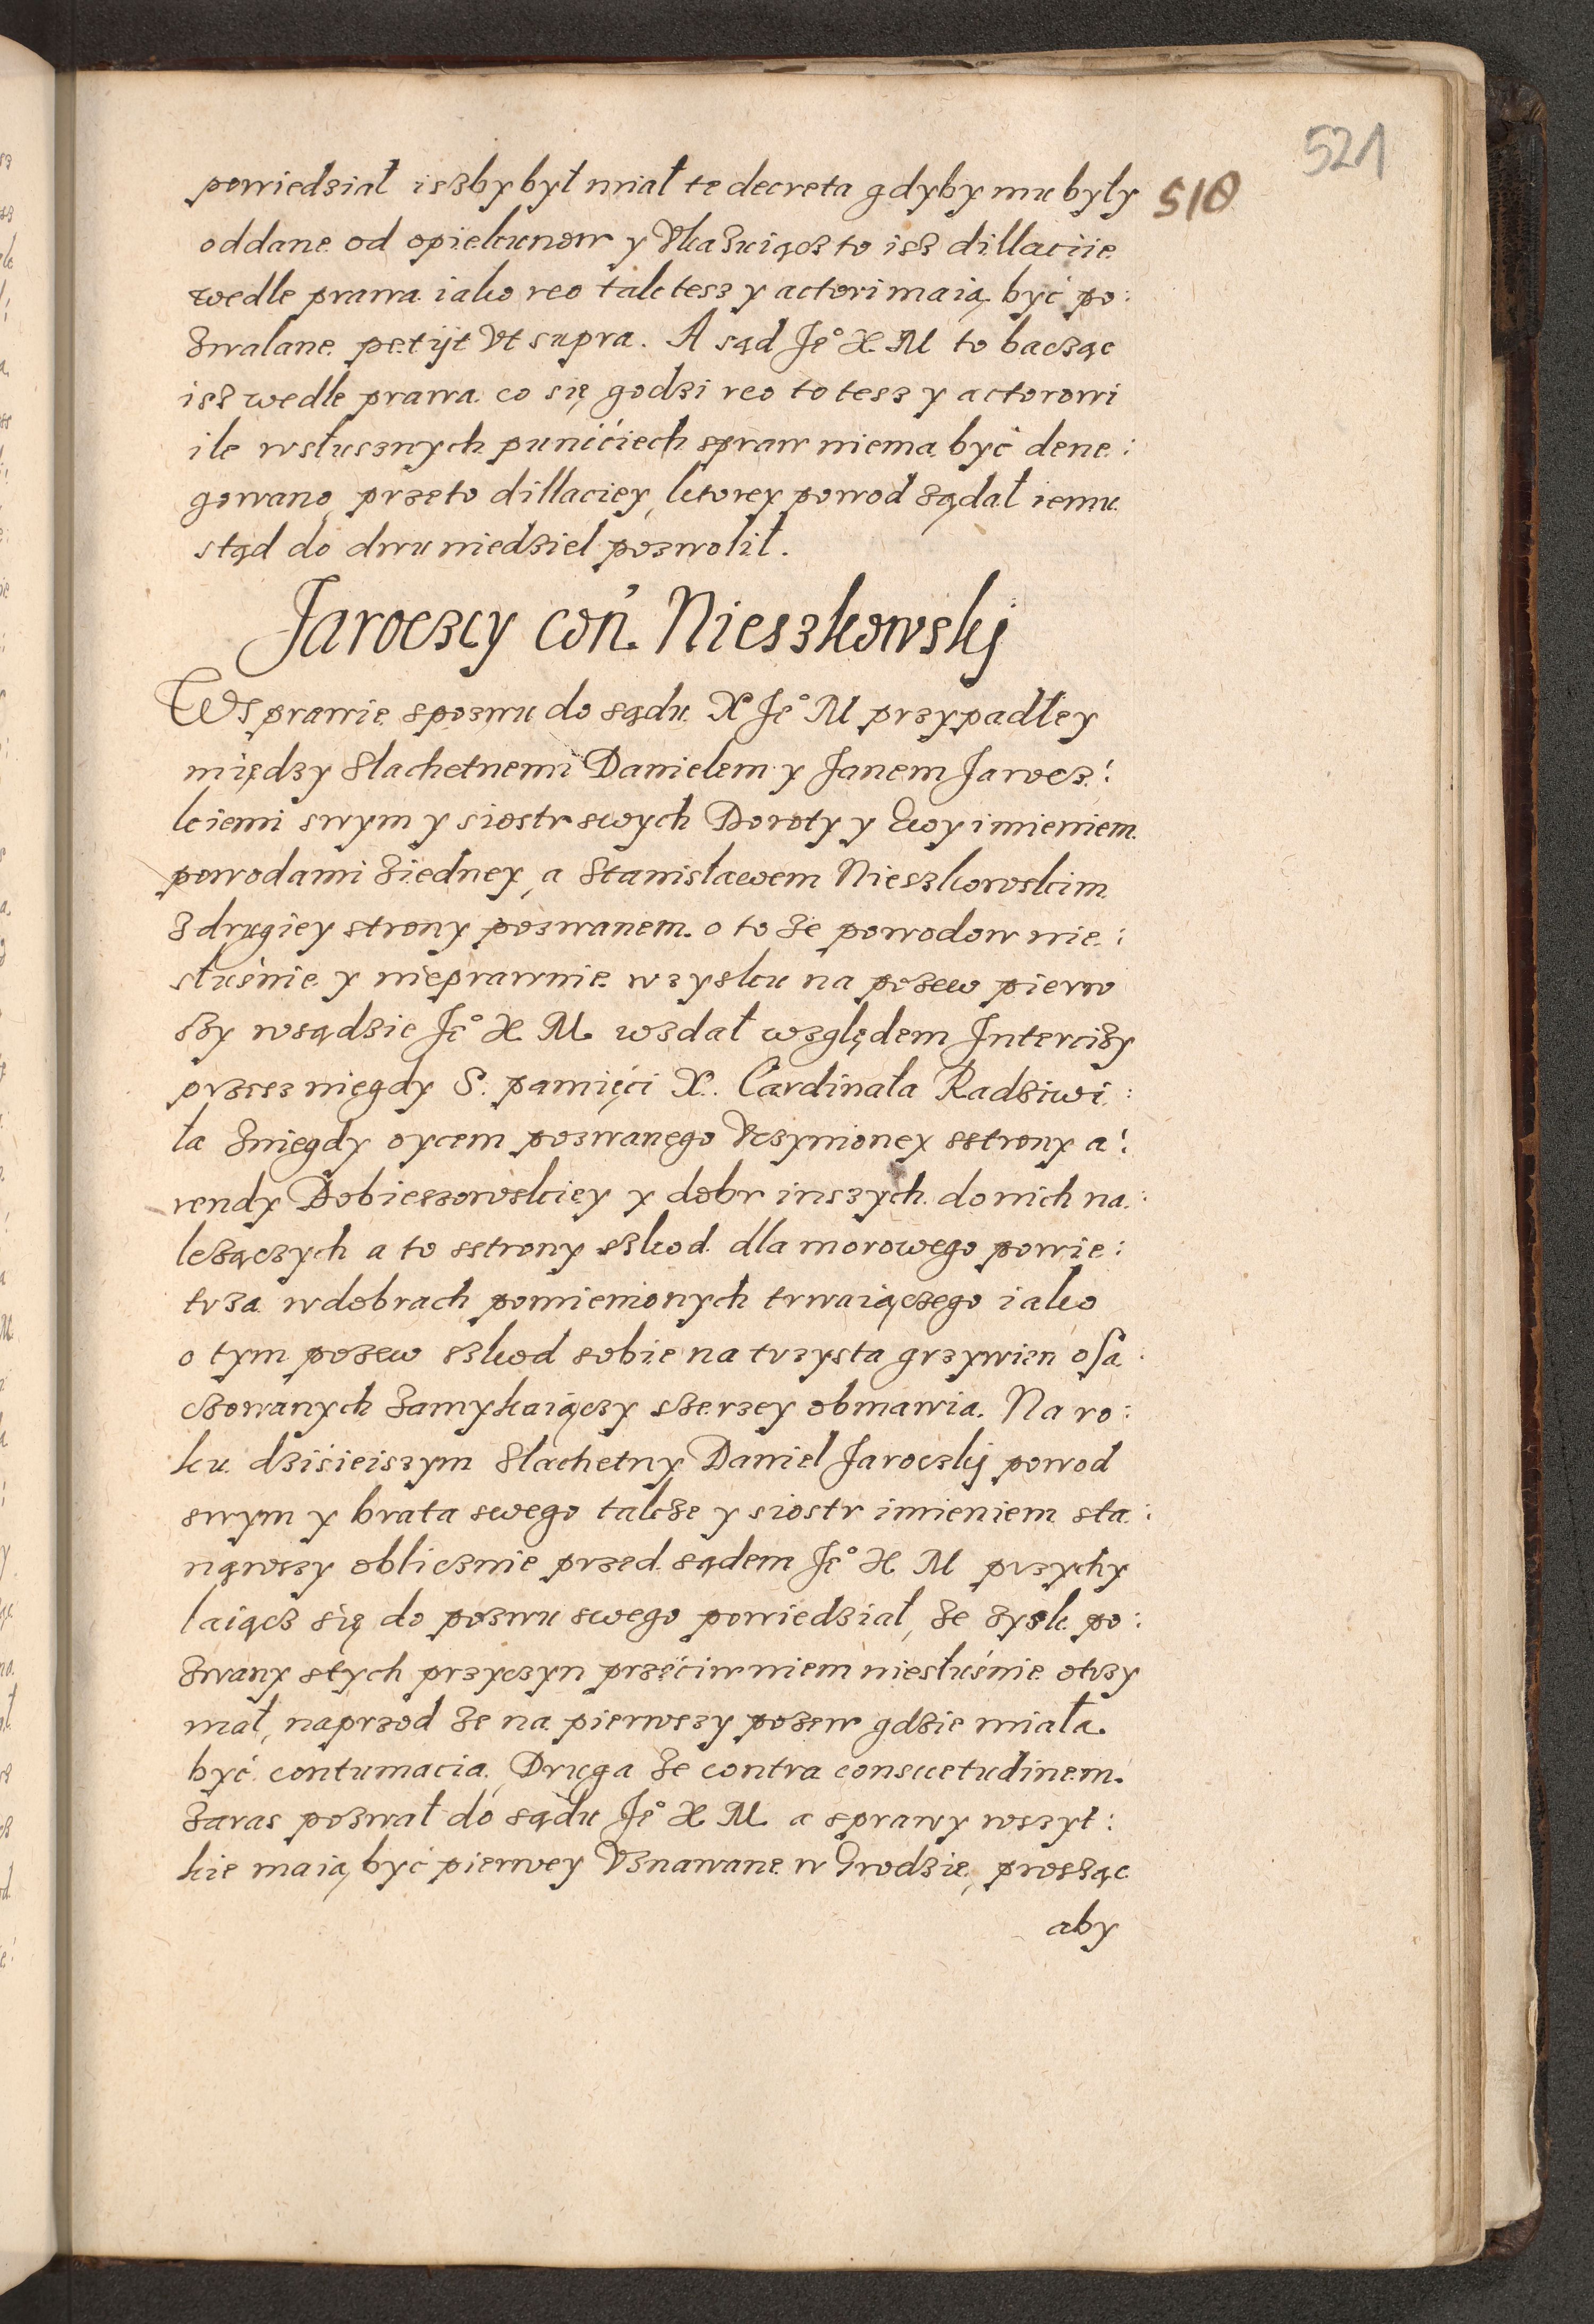 521
powiedział iszby był miał te decreta gdyby mu były 510
oddane od opiekunow y Vkazuiącz to isz dillaciie
wedle prawa iako reo tak tesz y actori maią być po:
zwalane petijt Vt supra. A sąd Je° X. M to bacząc
isz wedle prawa co się godzi reo to tesz y actorowi
ile w słusznych punćciech spraw niema być dene:
gowano, przeto dillaciey, ktorey powod żądał iemu
stąd do dwu niedziel pozwolił.
Jaroczcy con. Nieszkowskj
W sprawie s pozwu do sądu X° Je° M przypadłey
między Slachetnemi Danielem y Janem Jarocz:
kiemi swym y siostr swych Doroty y Ewy imieniem
powodami ziedney, a Stanisławem Nieszkowskim
z drugiey strony pozwanem. o to że powodow nie:
słuśnie y nieprawnie w zysku na pozew pierw
szy w sądzie Je° X M wzdał względem Intercizy
przesz niegdy S. pamięci X. Cardinała Radziwi:
ła z niegdy oycem pozwanego Vczynioney sstrony a:
rendy Dobieszowskiey y dobr inszych do nich na:
leżączych a to sstrony szkod dla morowego powie:
trza w dobrach pomienionych trwaiączego iako
o tym pozew szkod sobie na trzysta grzywien osza:
czowanych zamykaiączy szerzey obmawia. Na ro:
ku dzisieiszym Slachetny Daniel Jaroczkj powod
swym y brata swego także y siostr imieniem sta:
nąwszy oblicznie przed sądem Je° X M przychy
laiącz się do pozwu swego powiedział, że zysk po:
zwany stych przyczyn przećiw niem niesłuśnie otrzy
mał, naprzod że na pierwszy pozew gdzie miała
być contumacia, Druga że contra consuetudinem
zaras pozwał do sądu Je° X M a sprawy wszyt:
kie maią być pierwey Vznawane w Grodzie, prosząc
aby